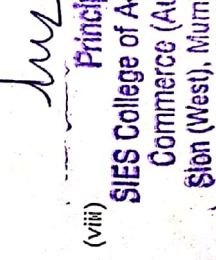 Princi
(viii)
SIES College of A
Commerce (Au
Sion (West), Mum